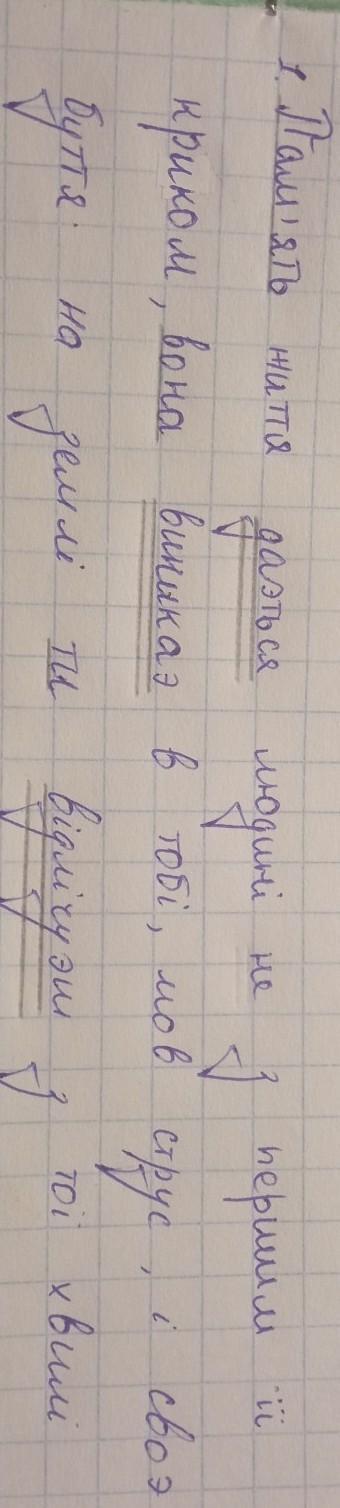 1. Пам'ять життя даэться людині не з першим її
криком, вона виникаэ в тобі, мов струс, і своэ
буття на землі ти відлічуэш з тої хвилі